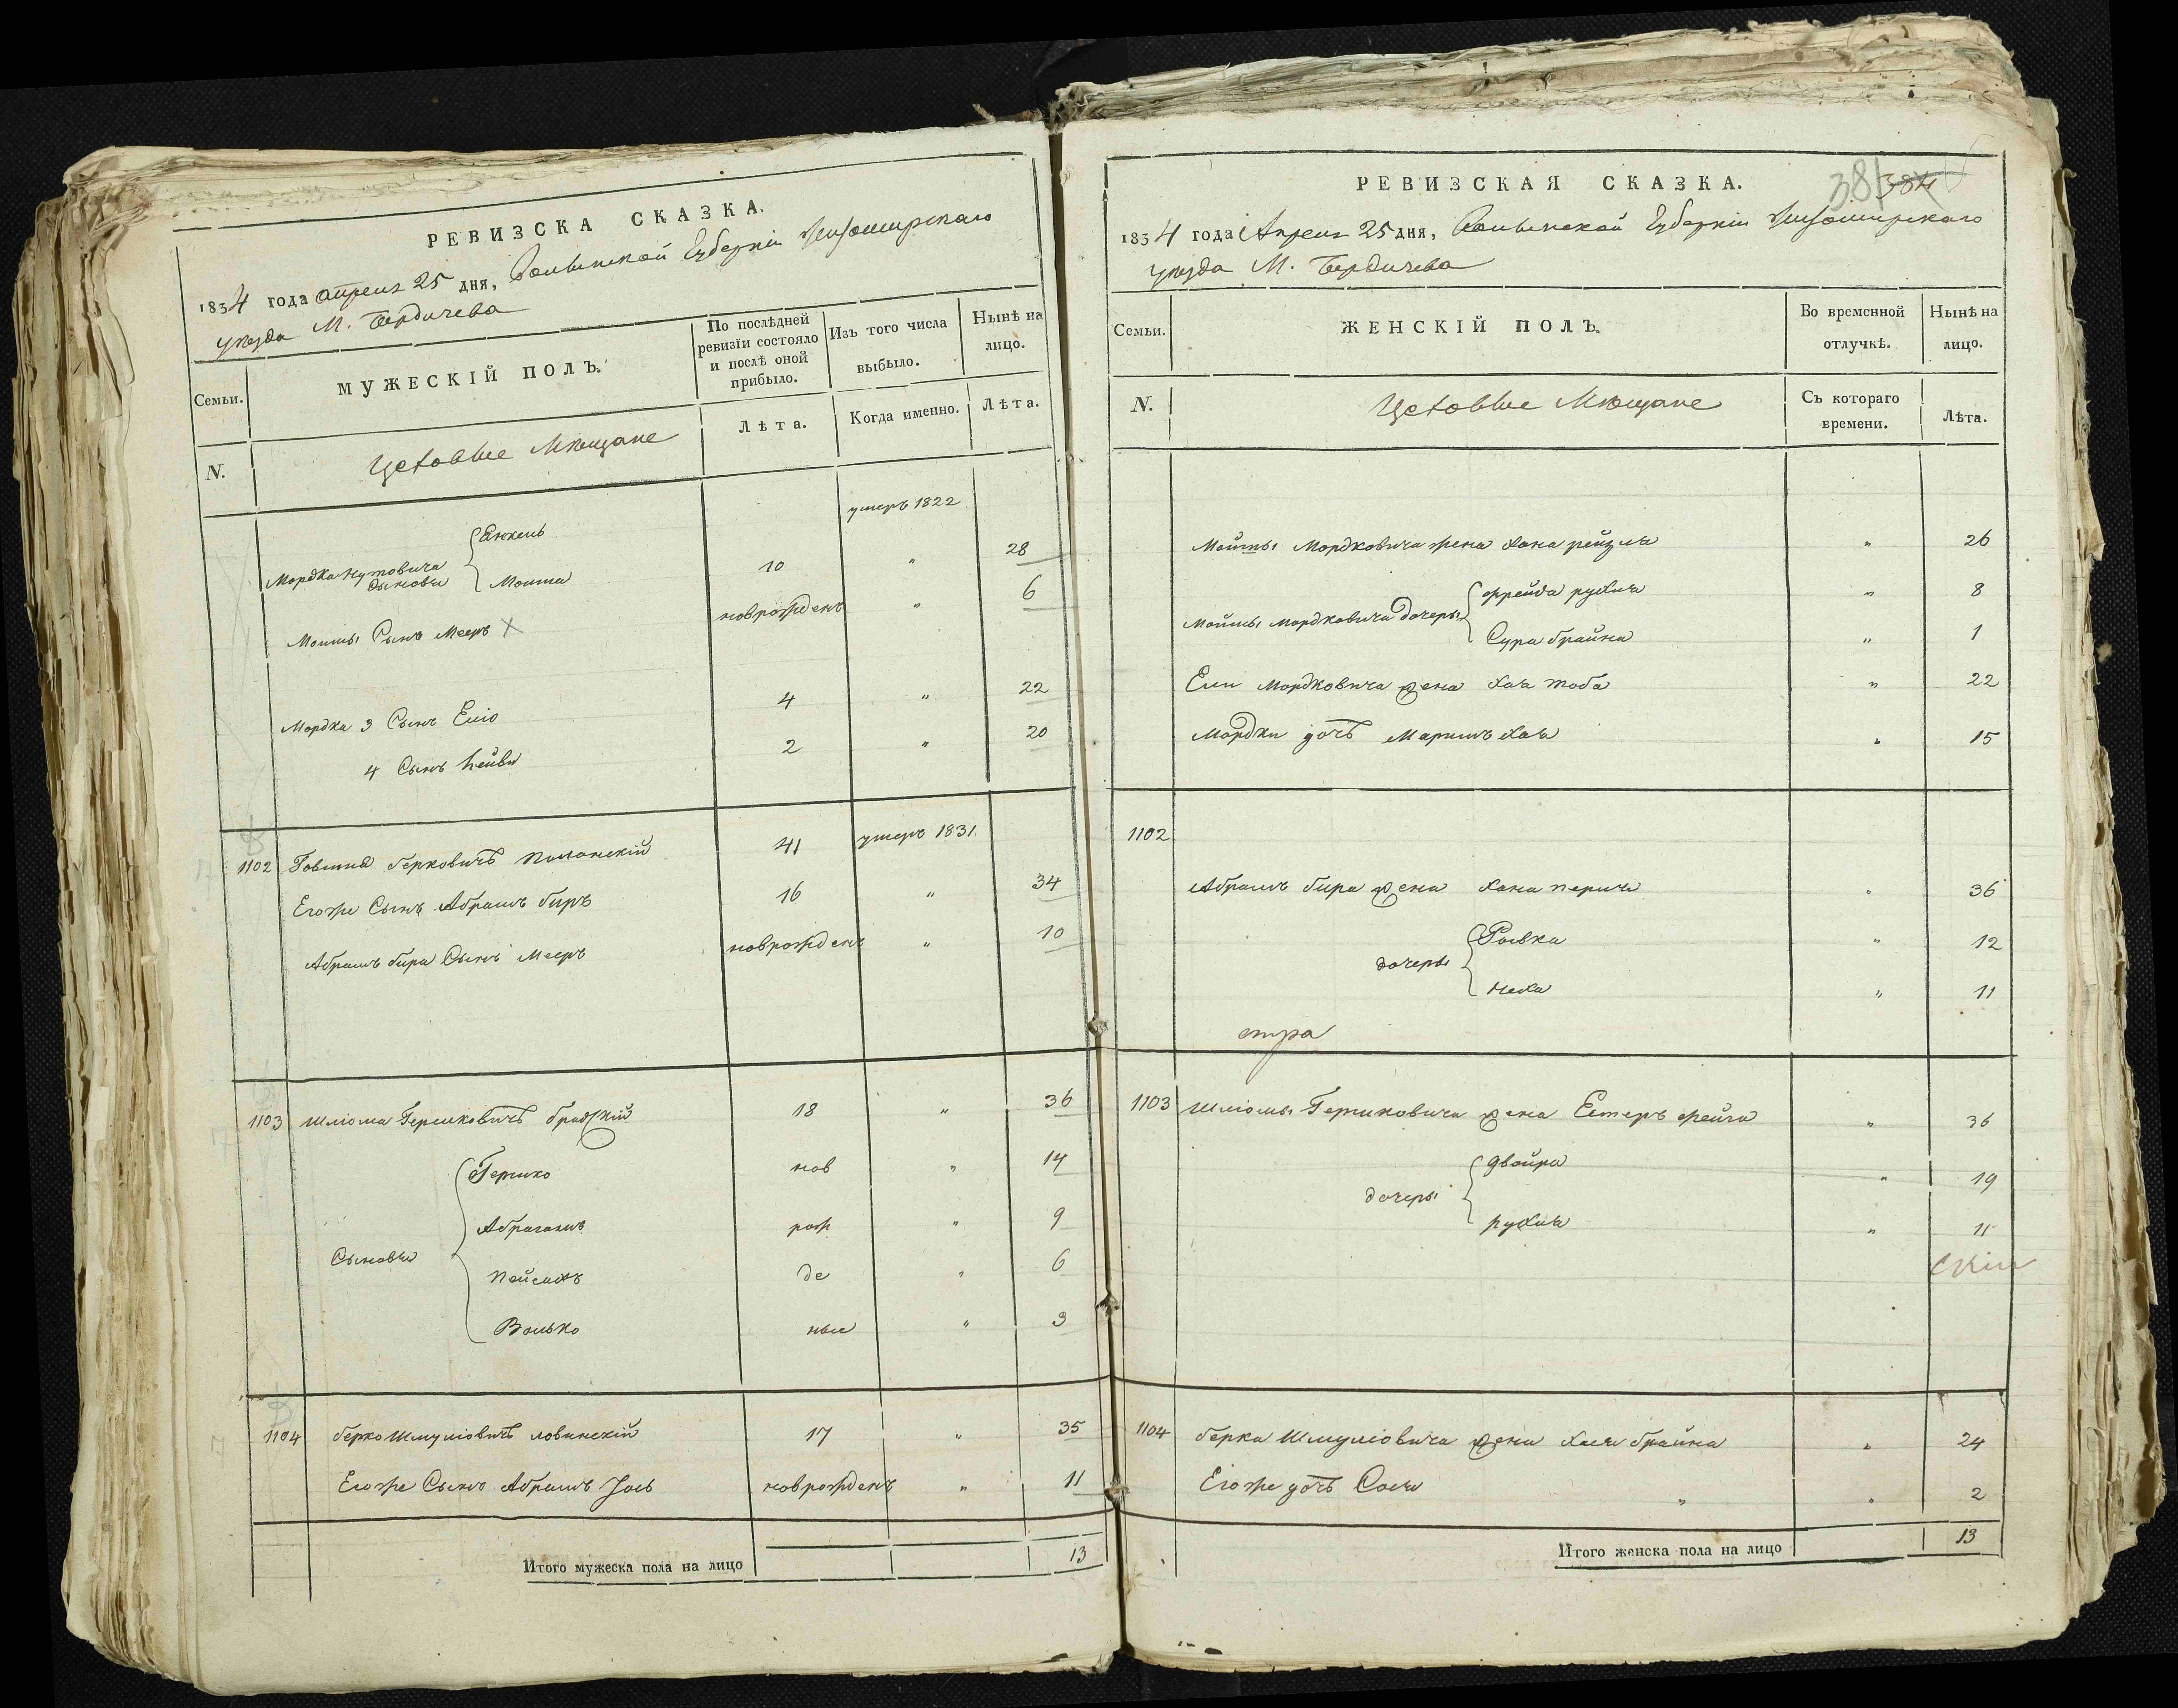 РЕВИЗСКА СКАЗКА.
1834 года апреля 25 дня, Волынской Губерніи Житомирскаго
уезда М. Бердичева
Семьи.
МУЖЕСКІЙ ПОЛЪ.
По послѣдней ревизіи состояло и послѣ оной прибыло.
Изъ того числа выбыло.
Нынѣ на лицо.
N.
Цеховые Мещане
Лѣта.
Когда именно.
Лѣта.
умеръ 1822
Мордка сыновья
Мошка 10 " 28
Мошки Сынъ Мееръ х новорожденъ " 6
Мордка 3 Сынъ Еліо 4 " 22
4 Сынъ Лейба 2 " 20
1102 Берковичъ 41 умеръ 1831
Егоже Сынъ Абрамъ Биръ 16 " 34
Абрамъ бира Сынъ Мееръ новрожденъ " 10
1103 Шліома Гершковичъ бродскій 18 " 36
Сыновья
Гершко нов " 14
Абрагамъ рож " 9
Пейсахъ де " 6
Волько ные " 3
1104 берко Шмуліовичъ ловинскій 17 " 35
Егоже Сынъ Абрамъ Іось новрожденъ " 11
Итого мужеска пола на лицо 13
РЕВИЗСКАЯ СКАЗКА.
381 384
1834 года Апреля 25 дня, Волынской Губерніи Житомирскаго
уезда М. Бердичева
Семьи.
ЖЕНСКІЙ ПОЛЪ.
Во временной отлучкѣ.
Нынѣ на лицо.
N.
Цеховые Мещане
Съ котораго времени.
Лѣта.
Мошки Мордковича жена Хана рейзля " 26
Мошки Мордковича дочеры
фрейда рухля " 8
Сура брайна " 1
Ели Мордковича жена Хая тоба " 22
Мордки дочь Маримъ Хая " 15
1102
Абрамъ бира жена Хана перля " 36
дочеры
Рывка " 12
Неха " 11
1103 Шліомы Гершковича жена Естеръ фейга " 36
дочеры
двойра " 19
рухля " 11
1104 берка Шмуліовича жена Хая брайна " 24
Егоже дочь Сося " " 2
Итого женска пола на лицо 13